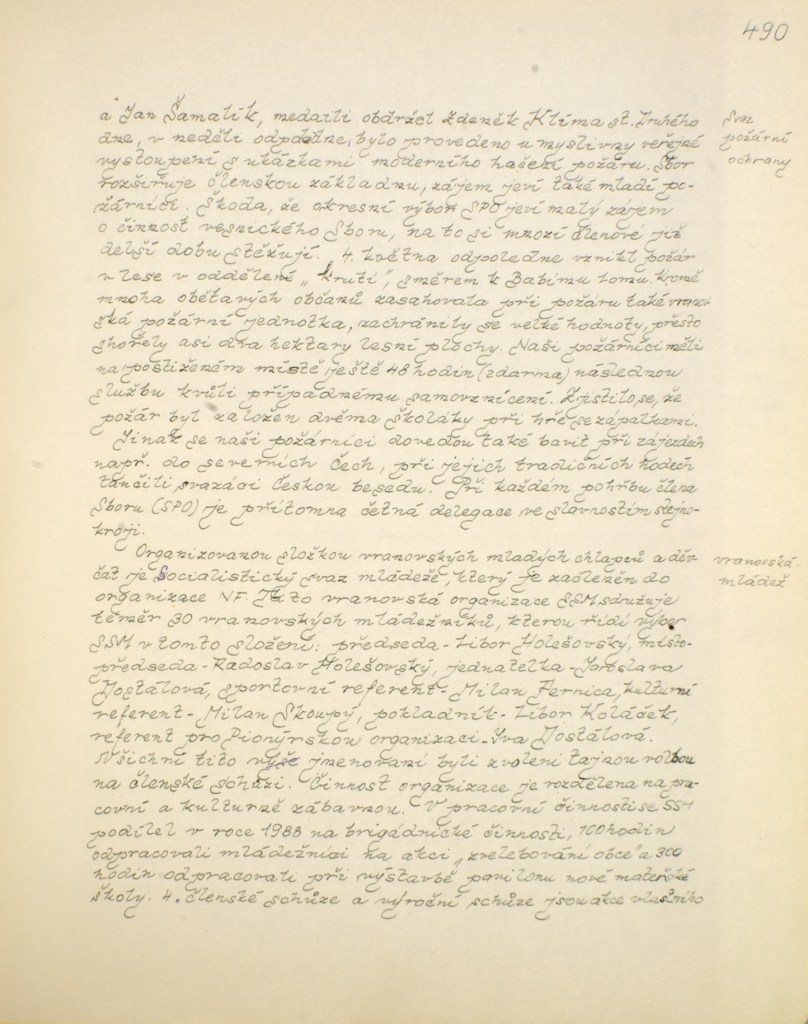 490
a Jan Šamalík, medaili obdržel Zdeněk Klíma st. Druhého
dne, v neděli odpoledne, bylo provedeno u myslivny veřejné
vystoupení s ukázkami moderního hašení požáru. Sbor
rozšiřuje členskou základnu, zájem jeví také mladí po-
žárníci. Škoda, že okresní výbor SPO jeví malý zájem
o činnost vesnického Sboru, na to si mnozí členové již
delší dobu stěžují. 4. května odpoledne vznikl požár
v lese v oddělení „Krutí", směrem k Babímu lomu. Kromě
mnoha obětavých občanů zasahovala při požáru také vranov-
ská požární jednotka, zachránily se velké hodnoty, přesto
shořely asi dva hektary lesní plochy. Naši požárníci měli
na postiženém místě ještě 48 hodin (zdarma) následnou
službu kvůli případnému samovznícení. Zjistilo se, že
požár byl založen dvěma školáky při hře se zápalkami.
Jinak se naši požárníci dovedou také bavit při zájezdech
např. do severních Čech, při jejich tradičních hodech
tančili svazáci Českou besedu. Při každém pohřbu člena
Sboru (SPO) je přítomna četná delegace ve slavnostním stejno-
kroji.
Svaz
požární
ochrany
Organizovanou složkou vranovských mladých chlapců a děv-
čat je Socialistický svaz mládeže, který je začleněn do
organizace NF. Tato vranovská organizace SSM sdružuje
téměř 30 vranovských mládežníků, kterou řídí výbor
SSM v tomto složení: předseda - Libor Holešovský, místo-
předseda - Radoslav Holešovský, jednatelka - Jaroslava
Dostálová, sportovní referent - Milan Fernica, kulturní
referent - Milan Skoupý, pokladník - Libor Koláček,
referent pro Pionýrskou organizaci - Iva Dostálová.
Všichni tito výše jmenovaní byli zvoleni tajnou volbou
na členské schůzi. Činnost organizace je rozdělena na pra-
covní a kulturně zábavnou. V pracovní činnosti se SSM
podílel v roce 1988 na brigádnické činnosti, 100 hodin
odpracovali mládežníci na akci „zvelebování obce" a 300
hodin odpracovali při výstavbě pavilonu nové mateřské
školy. 4. členské schůze a výroční schůze jsou akce vlastního
vranovská
mládež